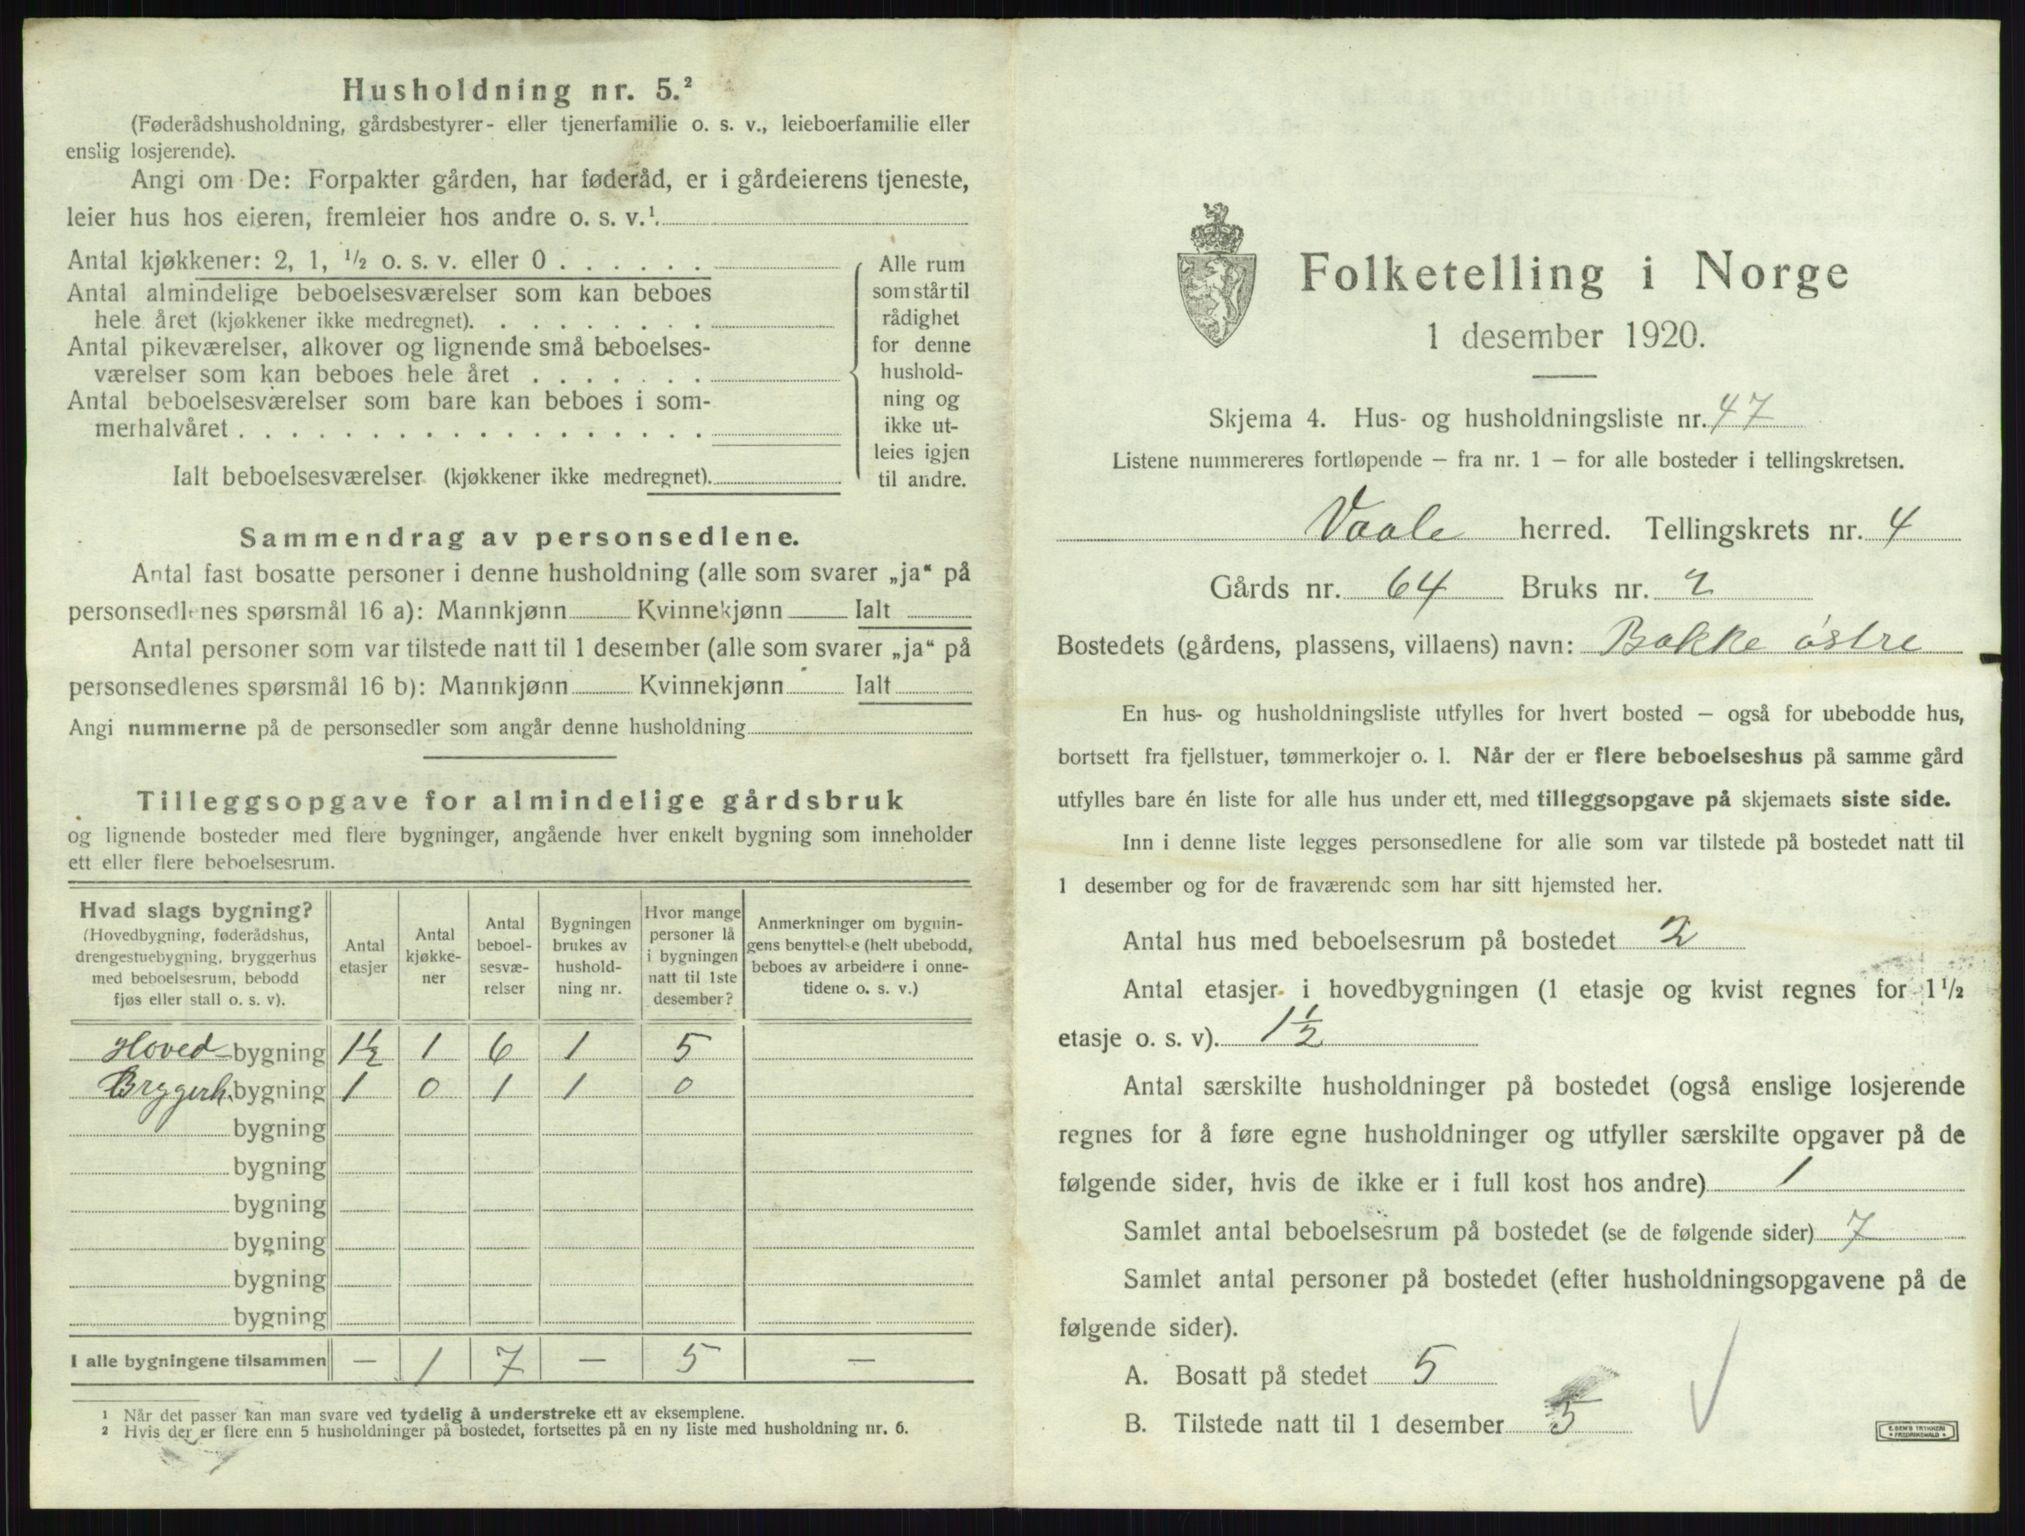 Husholdning nr. 5.²
(Føderådshusholdning, gårdsbestyrer- eller tjenerfamilie o. s. v., leieboerfamilie eller
enslig losjerende).
Angi om De: Forpakter gården, har føderåd, er i gårdeierens tjeneste,
leier hus hos eieren, fremleier hos andre o. s. v.¹
Antal kjøkkener: 2, 1, ½ o. s. v. eller 0
Antal almindelige beboelsesværelser som kan beboes
hele året (kjøkkener ikke medregnet).
Antal pikeværelser, alkover og lignende små beboelses-
værelser som kan beboes hele året
Antal beboelsesværelser som bare kan beboes i som-
merhalvåret
Ialt beboelsesværelser (kjøkkener ikke medregnet).
Alle rum
som står til
rådighet
for denne
hushold-
ning og
ikke ut-
leies igjen
til andre.
Sammendrag av personsedlene.
Antal fast bosatte personer i denne husholdning (alle som svarer „ja“ på
personsedlenes spørsmål 16 a): Mannkjønn Kvinnekjønn Ialt
Antal personer som var tilstede natt til 1 desember (alle som svarer „ja“ på
personsedlenes spørsmål 16 b): Mannkjønn Kvinnekjønn Ialt
Angi nummerne på de personsedler som angår denne husholdning
Tilleggsopgave for almindelige gårdsbruk
og lignende bosteder med flere bygninger, angående hver enkelt bygning som inneholder
ett eller flere beboelsesrum.
Hvad slags bygning?
(Hovedbygning, føderådshus,
drengestuebygning, bryggerhus
med beboelsesrum, bebodd
fjøs eller stall o. s. v).
Antal
etasjer
Antal
kjøkke-
ner
Antal
beboel-
sesvæ-
relser
Bygningen
brukes av
hushold-
ning nr.
Hvor mange
personer lå
i bygningen
natt til 1ste
desember?
Anmerkninger om bygnin-
gens benyttelse (helt ubebodd,
beboes av arbeidere i onne-
tidene o. s. v.)
Hoved-bygning 1½ 1 6 1 5
Bryggerh. bygning 1 0 1 1 0
bygning
bygning
bygning
bygning
bygning
bygning
I alle bygningene tilsammen — 1 7 — 5 —
¹ Når det passer kan man svare ved tydelig å understreke ett av eksemplene.
² Hvis der er flere enn 5 husholdninger på bostedet, fortsettes på en ny liste med husholdning nr. 6.
Folketelling i Norge
1 desember 1920.
Skjema 4. Hus- og husholdningsliste nr. 47
Listene nummereres fortløpende – fra nr. 1 – for alle bosteder i tellingskretsen.
Vaale herred. Tellingskrets nr. 4
Gårds nr. 64 Bruks nr. 2
Bostedets (gårdens, plassens, villaens) navn: Bakke østre
En hus- og husholdningsliste utfylles for hvert bosted – også for ubebodde hus,
bortsett fra fjellstuer, tømmerkojer o. l. Når der er flere beboelseshus på samme gård
utfylles bare én liste for alle hus under ett, med tilleggsopgave på skjemaets siste side.
Inn i denne liste legges personsedlene for alle som var tilstede på bostedet natt til
1 desember og for de fraværende som har sitt hjemsted her.
Antal hus med beboelsesrum på bostedet 2
Antal etasjer i hovedbygningen (1 etasje og kvist regnes for 1½
etasje o. s. v). 1½
Antal særskilte husholdninger på bostedet (også enslige losjerende
regnes for å føre egne husholdninger og utfyller særskilte opgaver på de
følgende sider, hvis de ikke er i full kost hos andre) 1
Samlet antal beboelsesrum på bostedet (se de følgende sider) 7
Samlet antal personer på bostedet (efter husholdningsopgavene på de
følgende sider).
A. Bosatt på stedet 5
B. Tilstede natt til 1 desember 5